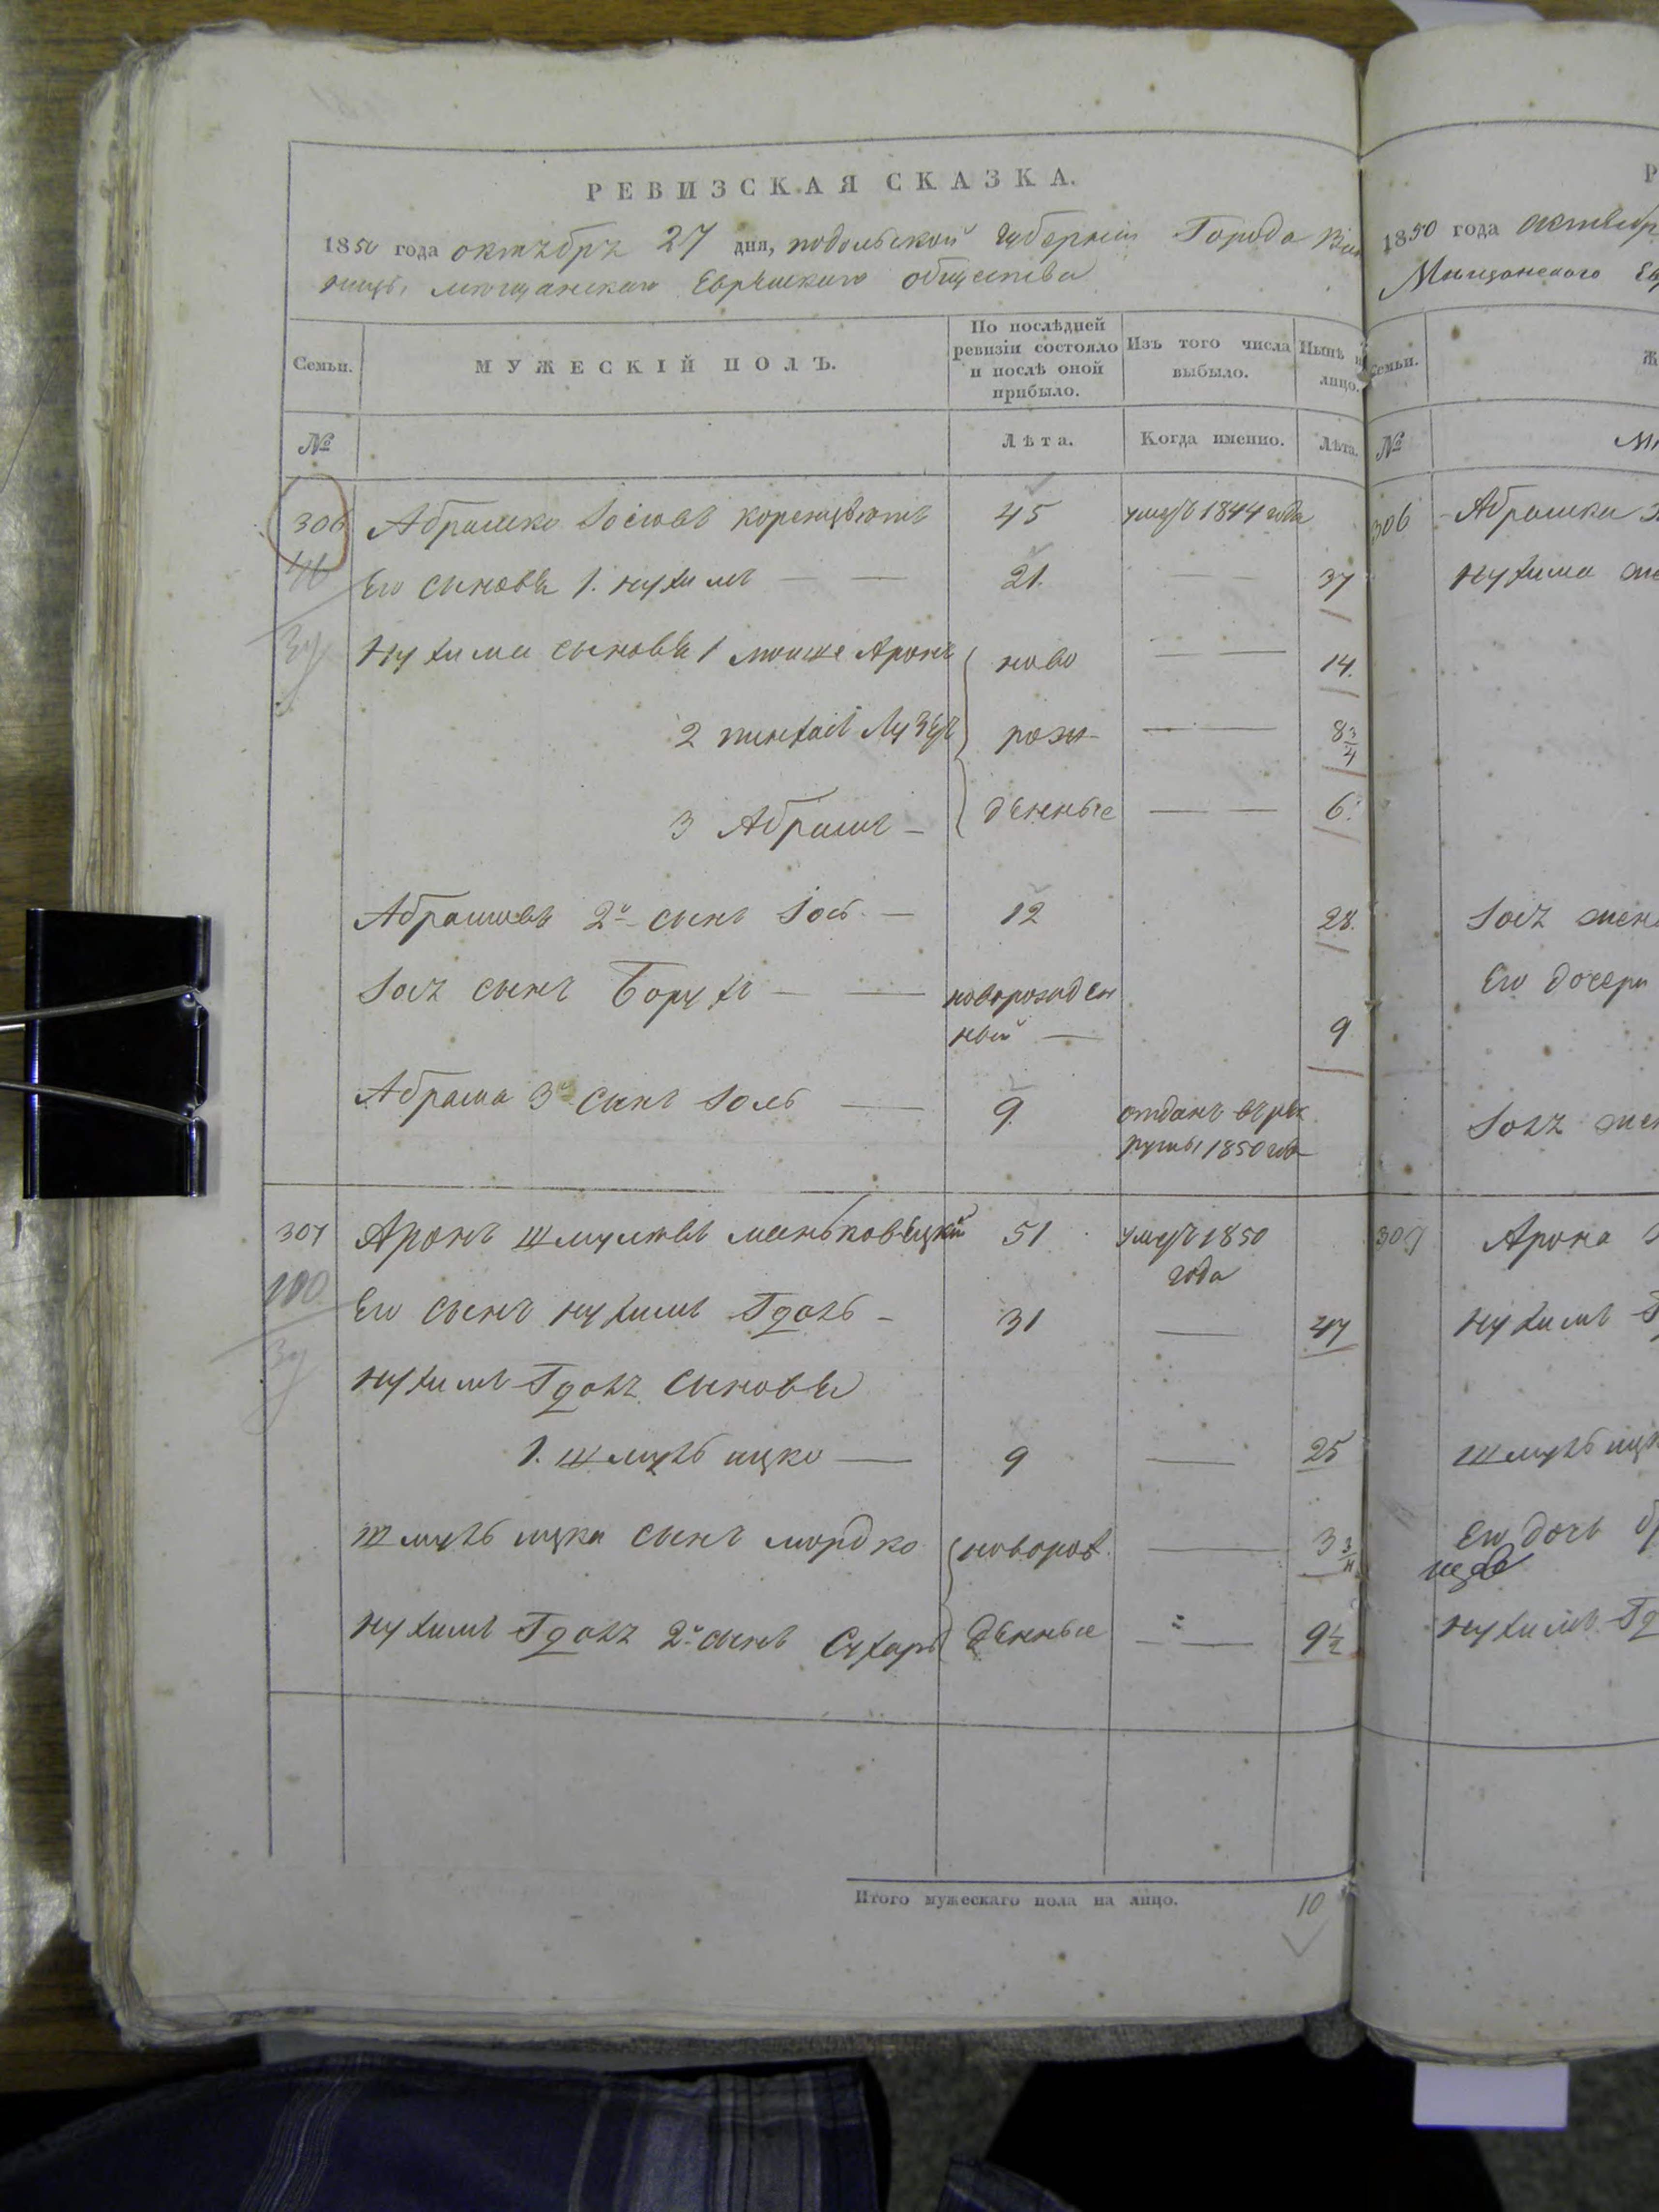 РЕВИЗСКАЯ СКАЗКА.
1850 года октъбръ 27 дня, подольской губерніи Города Вин
ницы, мещанскаго Еврейскаго общества
Семьи.
МУЖЕСКІЙ ПОЛЪ.
По послѣдней ревизіи состояло и послѣ оной прибыло.
Изъ того числа выбыло.
Нынѣ
лицо.
№
Лѣта.
Когда именно.
Лѣта.
306 Абрамко Іосіовъ коренцвютъ 45 умеръ 1844 года
Его сыновья 1. нухимъ — 21. — 37
Нухима сыновья 1 мошке Аронъ ново — — 14.
2 пинхас Лузеръ рож — — 8 3/4
3 Абрамъ — денные — — 6.
Абрамовъ 2й сынъ Іось — 12 28.
Іося сынъ Борухъ — — новорожден
ный — 9
Абрама 3й сынъ Іоль — 9. отданъ въ рек
руты 1850 года
307 Аронъ Шмулювъ маньковецкій 51 умеръ 1850
года
Его сынъ нухимъ Гдаль — 31 — 47
нухимъ Гдаля сыновья
1. Шмуль ицко — 9 — 25
Шмуль ицка сынъ мордко новорож — 3 3/4
нухимъ Гдаля 2й сынъ Сухаръ денные — — 9 1/2
Итого мужескаго пола на лицо. 10
Р
1850 года октебр
Мещанскаго Ев
Семьи.
Ж
№
306 Абрамки
нухима
Іося жен
Его дочери
Іоля жен
307 Арона
нухимъ
Шмуль ицк
Его дочь
нухимъ Гд